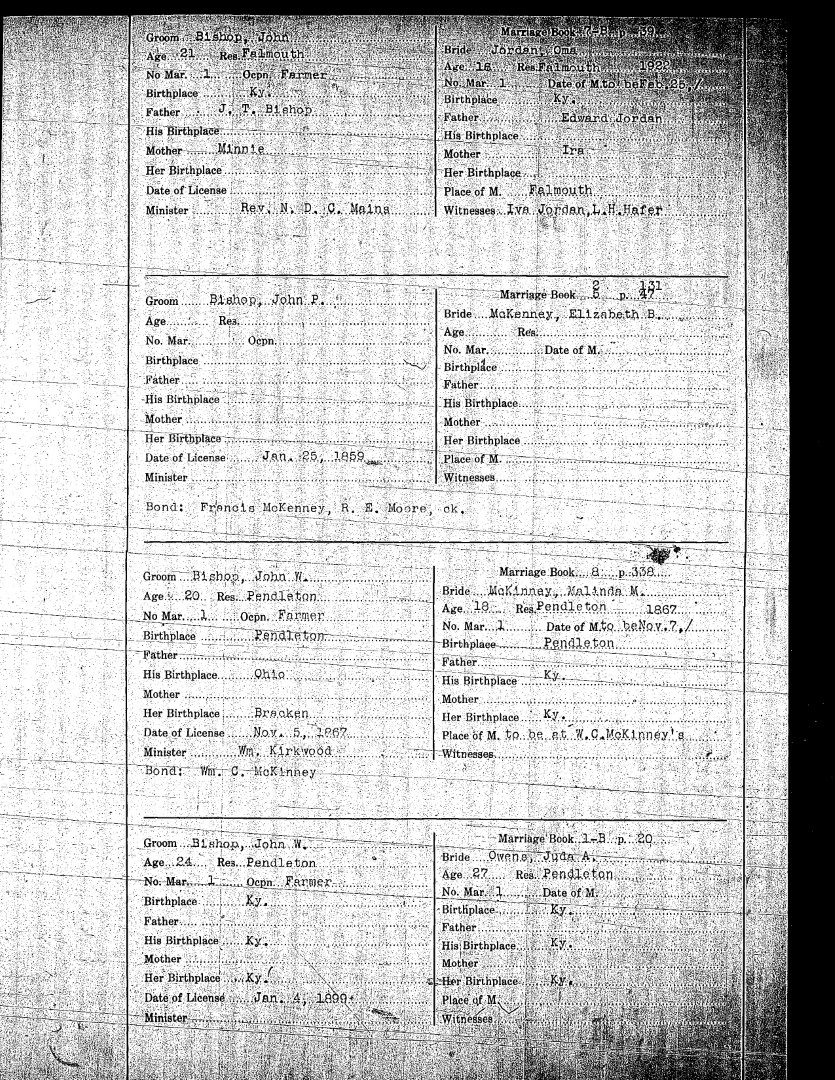 Groom Bishop, John
Age 21 Res. Falmouth
No Mar. 1 Ocpn. Farmer
Birthplace Ky.
Father J. T. Bishop
His Birthplace
Mother Minnie
Her Birthplace
Date of License
Minister Rev. N. D. C. Mains
Marriage Book 7-B p. 39
Bride Jordan, Oma
Age 18 Res. Falmouth 1922
No. Mar. 1 Date of M. to be Feb. 25, /
Birthplace Ky.
Father Edward Jordan
His Birthplace
Mother Ira
Her Birthplace
Place of M. Falmouth
Witnesses Iva Jordan, L.H. Hafer
Groom Bishop, John P.
Age Res.
No. Mar. Ocpn.
Birthplace
Father
His Birthplace
Mother
Her Birthplace
Date of License Jan. 25, 1859
Minister
2 131
Marriage Book 5 p. 47
Bride McKenney, Elizabeth B.
Age Res.
No. Mar. Date of M.
Birthplace
Father
His Birthplace
Mother
Her Birthplace
Place of M.
Witnesses
Bond: Francis McKenney, R. E. Moore, ck.
Groom Bishop, John W.
Age 20 Res. Pendleton
No Mar. 1 Ocpn. Farmer
Birthplace Pendleton
Father
His Birthplace Ohio
Mother
Her Birthplace Bracken
Date of License Nov. 5, 1867
Minister Wm. Kirkwood
Bond: Wm. C. McKinney
Marriage Book 8 p. 338
Bride McKinney, Malinda M.
Age 18 Res. Pendleton 1867
No. Mar. 1 Date of M. to be Nov. 7, /
Birthplace Pendleton
Father
His Birthplace Ky.
Mother
Her Birthplace Ky.
Place of M. to be at W.C. McKinney's
Witnesses
Groom Bishop, John W.
Age 24 Res. Pendleton
No. Mar. 1 Ocpn. Farmer
Birthplace Ky.
Father
His Birthplace Ky.
Mother
Her Birthplace Ky.
Date of License Jan. 4, 1899
Minister
Marriage Book 1-B p. 20
Bride Owens, Juda A.
Age 27 Res. Pendleton
No. Mar. 1 Date of M.
Birthplace Ky.
Father
His Birthplace Ky.
Mother
Her Birthplace Ky.
Place of M.
Witnesses